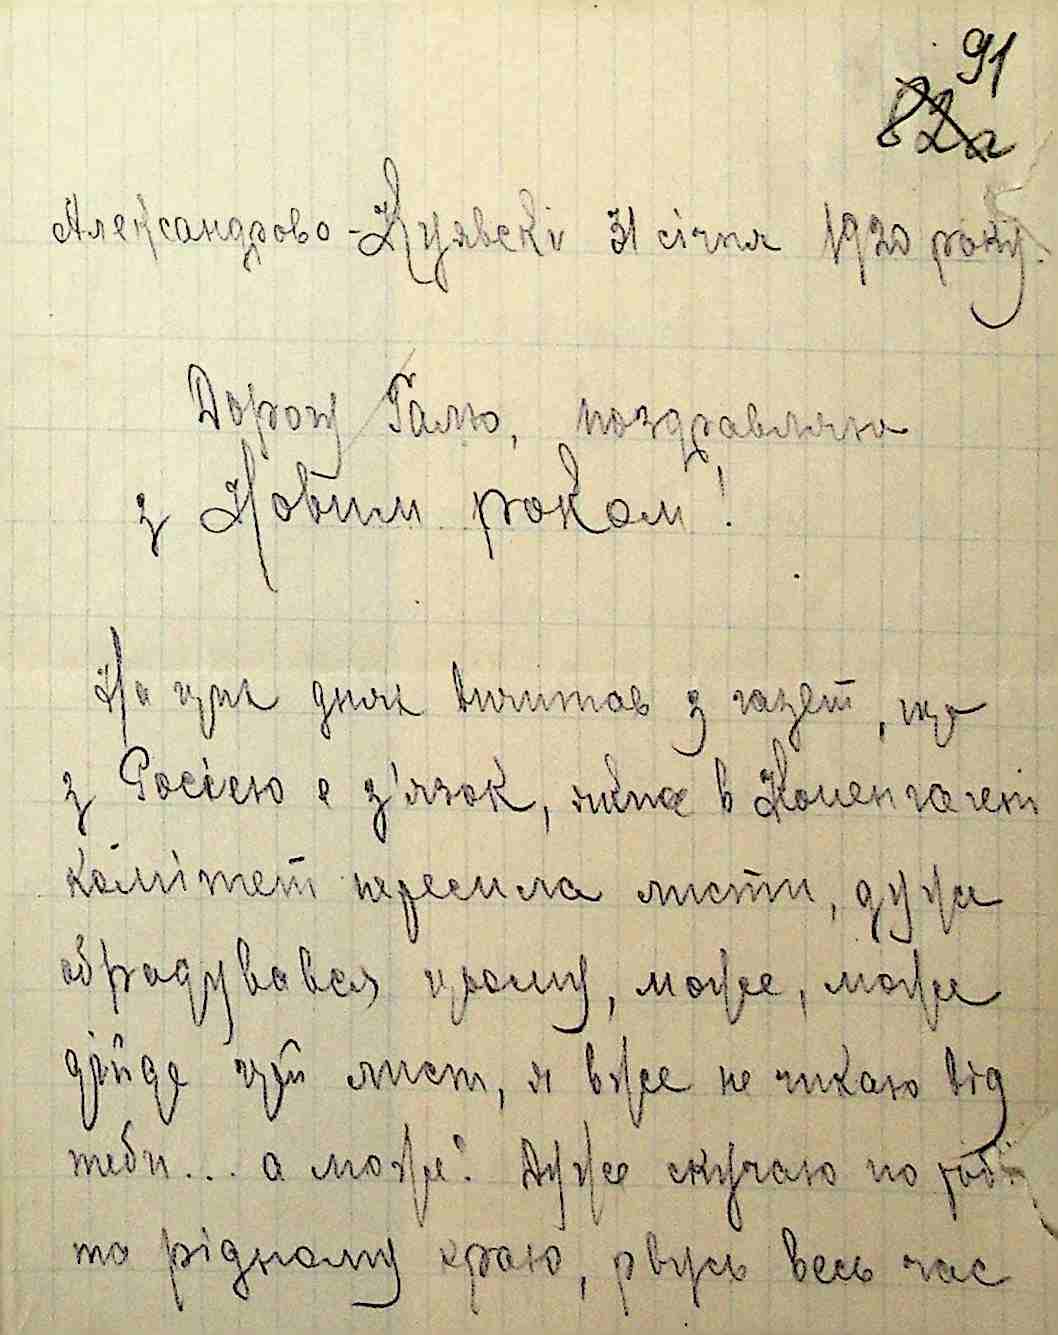 91
82a
Александрово-Куявскі 31 січня 1920 року.
Дорогу Галю, поздравляю
з Новим роком!
На цих днях вичитав з газет, що
з Росією є з'язок, якже в Копенгагені
комітет пересила листи, дуже
обрадувався цьому, може, може
дійде цей лист, я вже не чикаю від
теби... а може? Дуже скучаю по тобі
та рідному краю, рвусь весь час